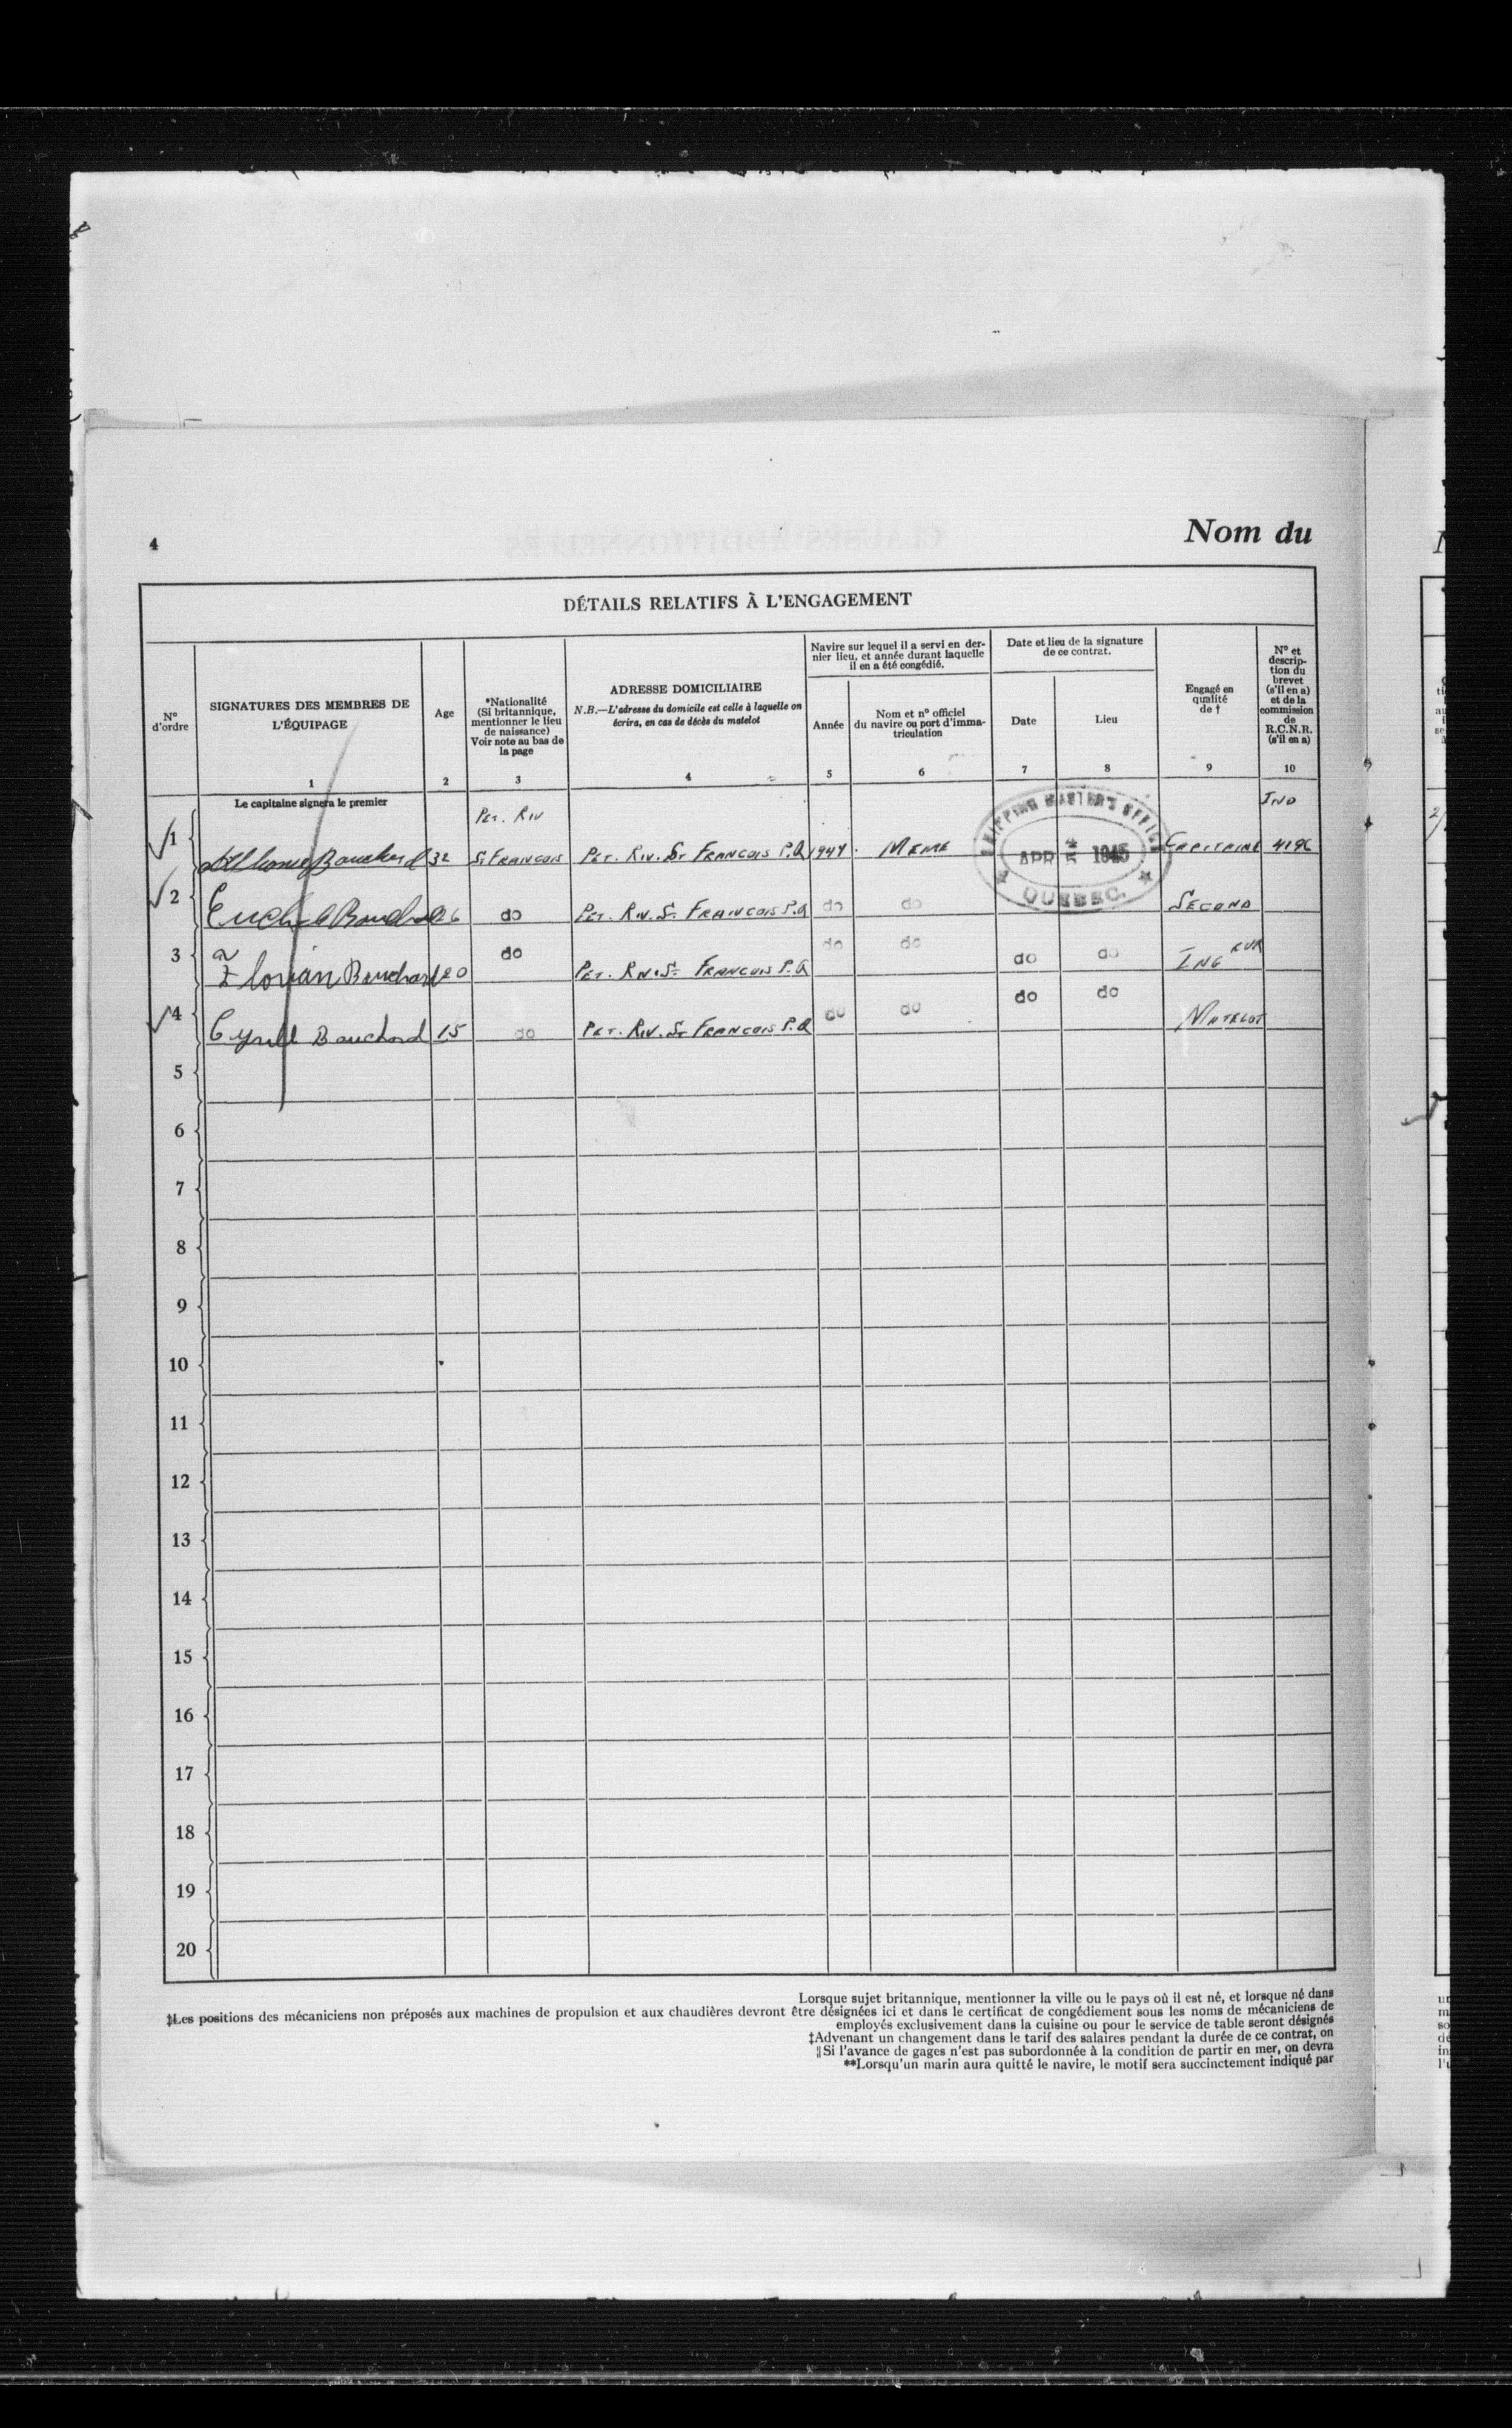 4
Nom du
DÉTAILS RELATIFS À L'ENGAGEMENT
N° d'ordre
SIGNATURES DES MEMBRES DE
L'ÉQUIPAGE
1
Age
2
*Nationalité
(Si britannique,
mentionner le lieu
de naissance)
Voir note au bas de
la page
3
ADRESSE DOMICILIAIRE
N.B.—L'adresse du domicile est celle à laquelle on
écrira, en cas de décès du matelot
4
Navire sur lequel il a servi en der-
nier lieu, et année durant laquelle
il en a été congédié.
Année
5
Nom et n° officiel
du navire ou port d'imma-
triculation
6
Date et lieu de la signature
de ce contrat.
Date
7
Lieu
8
Engagé en
qualité
de †
9
N° et
descrip-
tion du
brevet
(s'il en a)
et de la
commission
de
R.C.N.R.
(s'il en a)
10
Le capitaine signera le premier
PET. RIV IND
1 Bouchard 32 ST FRANCOIS PET. RIV. ST FRANCOIS P.Q 1944. MEME CAPITAINE 4196
SHIPPING MASTER'S OFFICE
APR 5 1945
QUEBEC.
2 26 do PET. RIV. ST FRANCOIS P.Q do do SECOND
3 Florian Bouchard 20 do PET. RIV. ST FRANCOIS P.Q do do do do ING EUR
4 Cyrill Bouchard 15 do PET. RIV. ST FRANCOIS P.Q do do do do MATELOT
5
6
7
8
9
10
11
12
13
14
15
16
17
18
19
20
Lorsque sujet britannique, mentionner la ville ou le pays où il est né, et lorsque né dans
‡Les positions des mécaniciens non préposés aux machines de propulsion et aux chaudières devront être désignées ici et dans le certificat de congédiement sous les noms de mécaniciens de
employés exclusivement dans la cuisine ou pour le service de table seront désignés
‡Advenant un changement dans le tarif des salaires pendant la durée de ce contrat, on
‖Si l'avance de gages n'est pas subordonnée à la condition de partir en mer, on devra
**Lorsqu'un marin aura quitté le navire, le motif sera succinctement indiqué par